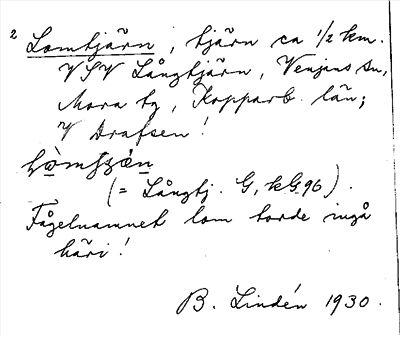 2 Lomtjärn, tjärn ca 1/2 km.
VSV Långtjärn, Venjans sn,
Mora tg, Kopparb. län;
V Drafsen!
(= Långtj. G, kG 96).
Fågelnamnet lom torde ingå
häri!
B. Lindén 1930.